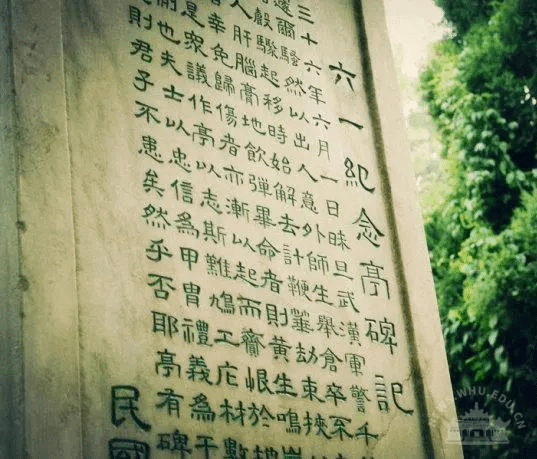 六一紀念亭碑記
三十六年六月一日昧旦武漢軍警千
爾騷然以出人意外師生舉倉卒至
驟起移時始解去計鞭箠劫束挾
人肝腦膏地飲彈畢命者則黃生鳴
幸免歸傷者亦漸以起而齎恨於
是眾議作亭以志斯難鳩工庀材數
也夫士以忠信為甲冑禮義為干
則君子不患矣然乎否耶亭有碑
民國
WHU.EDU.CN